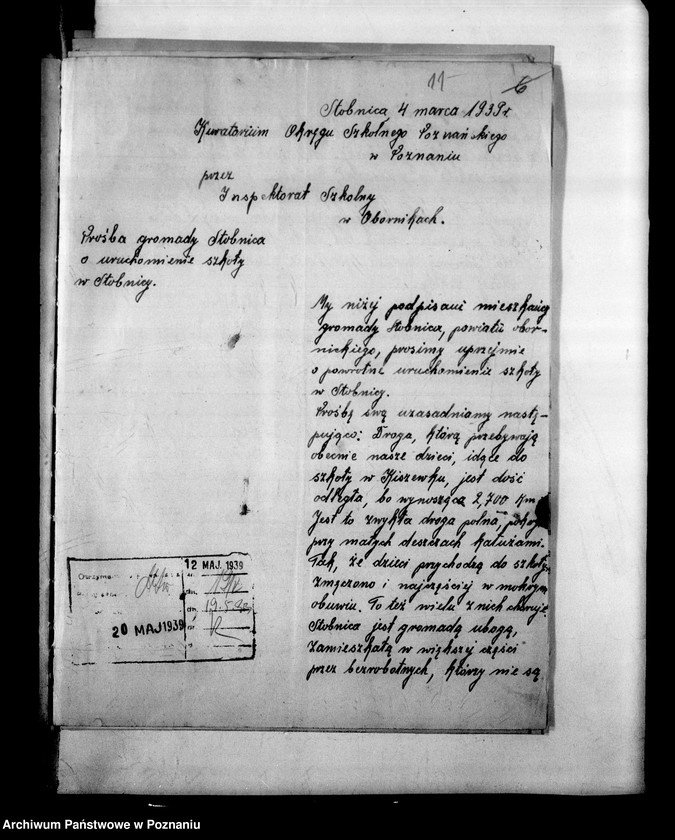 11 6
Stobnica, 4 marca 1939 r.
Kuratorium Okręgu Szkolnego Poznańskiego
w Poznaniu
przez
Inspektorat Szkolny
w Obornikach.
Prośba gromady Stobnica
o uruchomienie szkoły
w Stobnicy.
My niżej podpisani mieszkańcy
gromady Stobnica, powiatu obor-
nickiego, prosimy uprzejmie
o powrotne uruchomienie szkoły
w Stobnicy.
Prośbę swą uzasadniamy nastę-
pująco: Droga, którą przebywają
obecnie nasze dzieci, idące do
szkoły w Kiszewku, jest dość
odległa, bo wynosząca 2,700 km.
Jest to zwykła droga polna,
przy małych deszczach kałużami.
Tak, że dzieci przychodzą do szkoły
zmęczone i najczęściej w mokrym
obuwiu. To też wielu z nich choruje.
Stobnica jest gromadą ubogą,
zamieszkałą w większej części
przez bezrobotnych, którzy nie są
12 MAJ. 1939
Otrzymano
dn.
20 MAJ 1939
Archiwum Państwowe w Poznaniu